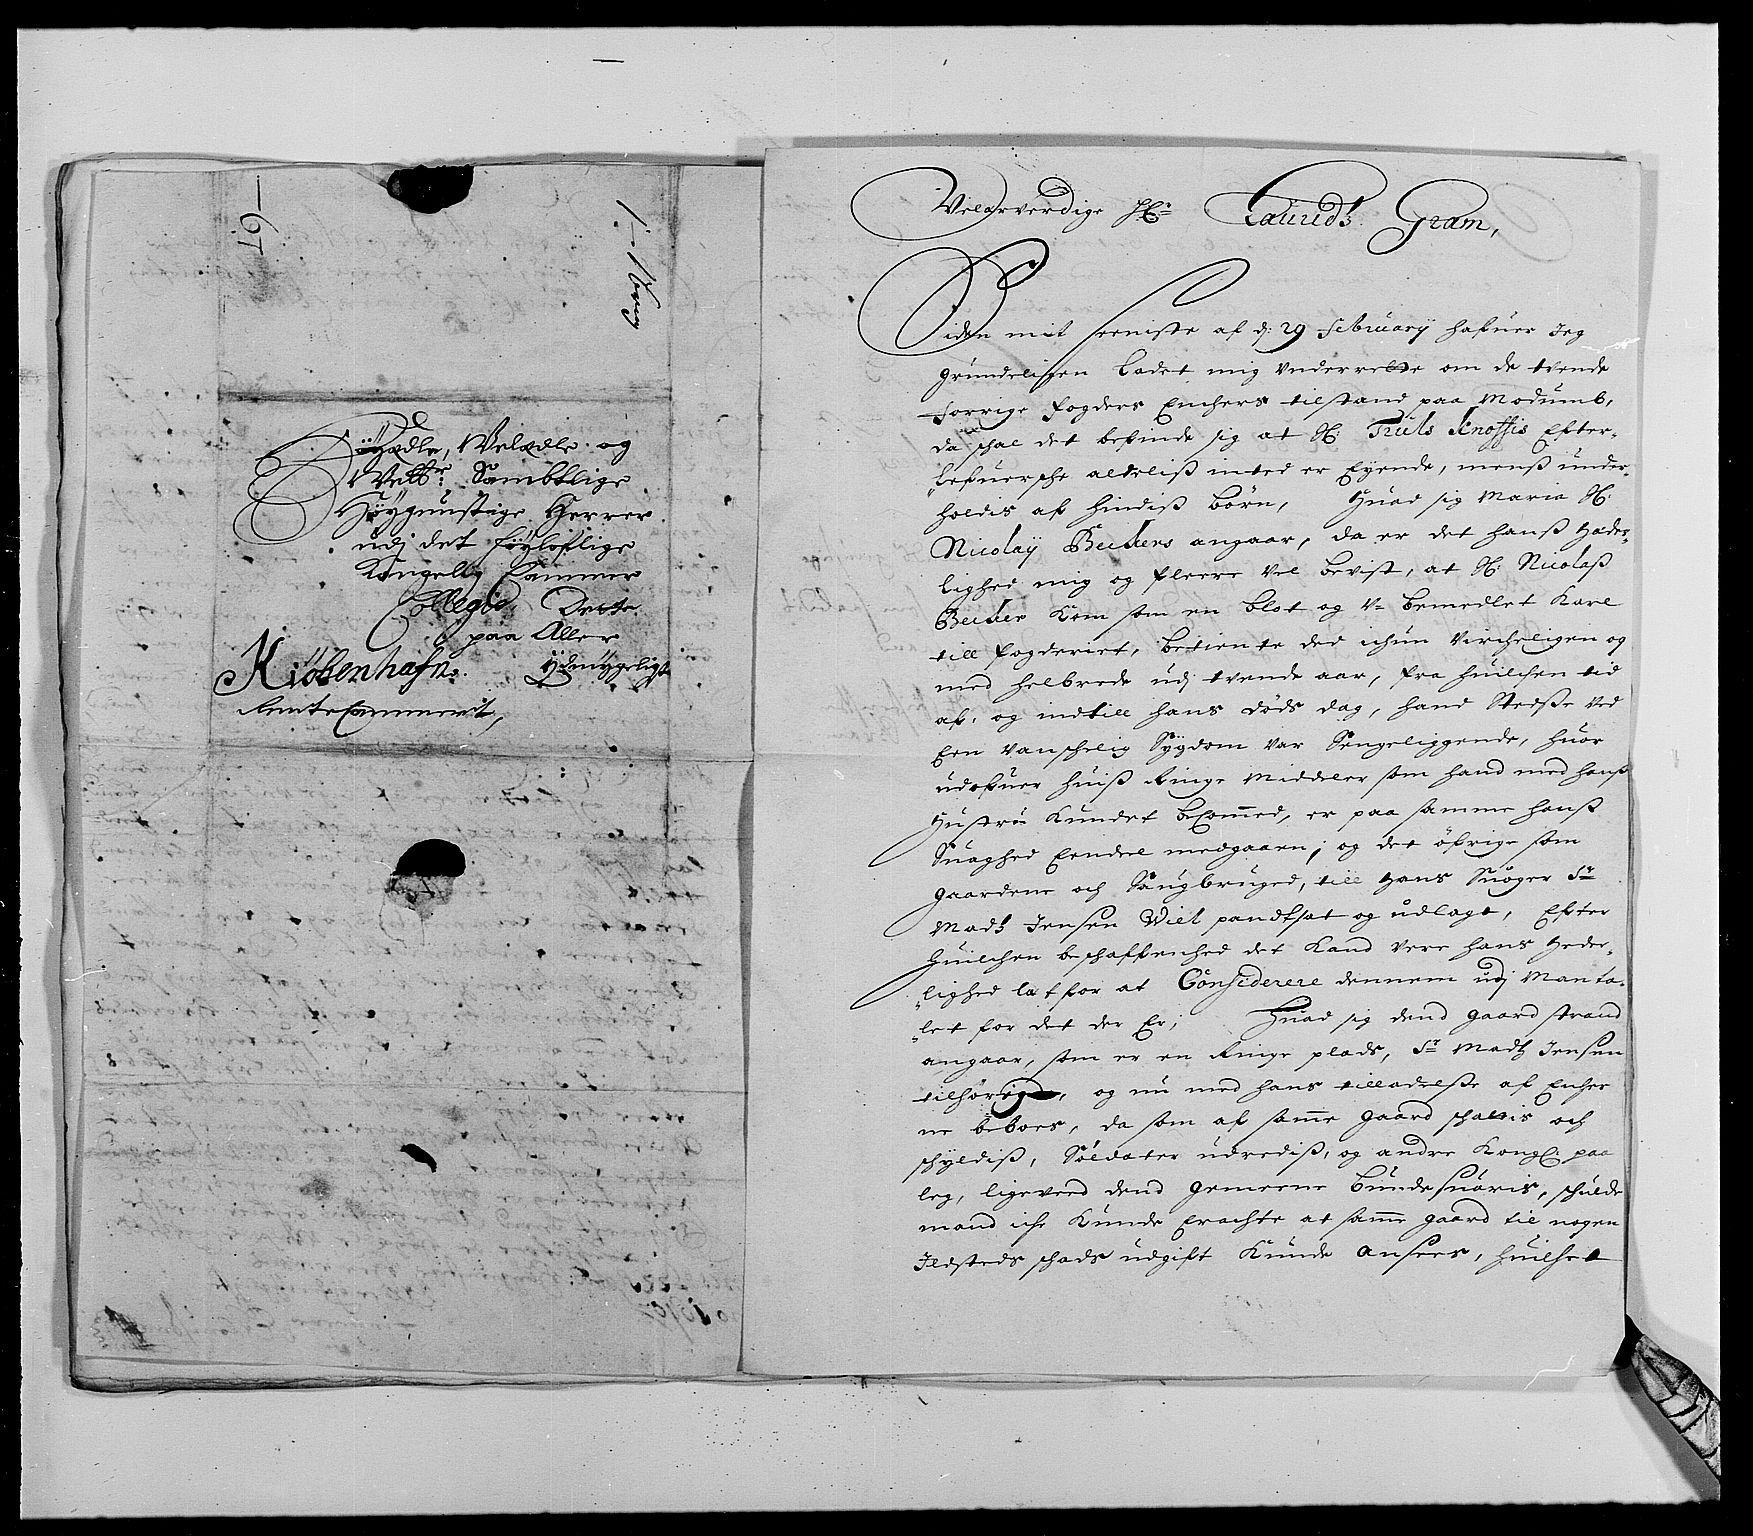 Höyædle, Welædle og
Welb: Sambtlige
Höygunstige Herrer
udj det höyloflige
Kongelig Cammer
Collegio, Dette
paa Aller
Kiöbenhafn. Ydmygeligst
RenteCammerit,
Velærværdige Hr: Laurids Gram,
Siden mit seeniste af d: 29 february hafuer Jeg
grundeligen ladet mig underrette om de tvende
forrige fogders Enchers tilstand paa Modumb,
da schal det befinde sig at S: Truls Knoffis Efter-
lefuersche alделiß inted er Eyende, menß under-
holdis af hindiß börn, Huad sig Maria S:
Nicolaÿ Beckers angaar, da er det hanß Hæder-
lighed mig og fleere vel bevist, at S: Nicolaß
Becker Kom som en blot og u-bemedlet Karl
till fogderiet, betiente ded ichun Vircheligen og
med helbrede udj tvende aar, fra huilchen tid
af, og indtill hans döds dag, hand Stedße ved
Een vanschelig Sÿgdom var Sengeliggende, huor
udofuer huiß Ringe Middeler som hand med hanß
Hustru Kundet bekommed, er paa samme hanß
Suaghed Eendeel medgaaen; og det öfrige som
gaardene och Saugbruged, till Hans Suoger Sr
Madz Jensen Wiel pandtsat og udlagt, Efter
huilchen beschaffenhed det Kand vere hans Heder-
lighed latfor at Considerere dennem udj Manta-
let for det der Er; Huad sig dend gaard strand
angaar, som er en Ringe plads, Sr Madz Jensen
tilhörig, og nu med hans tilladelße af Encher
ne beboes, da som af samme gaard schattis och
schyldiß, Soldater udrediß, og andre Kongl: paa
leg, ligeveed dend gemeene bunde suaris, schulde
mand iche Kunde Erachte at samme gaard til nogen
Ildsteds schads udgift Kunde ansees, huilchet